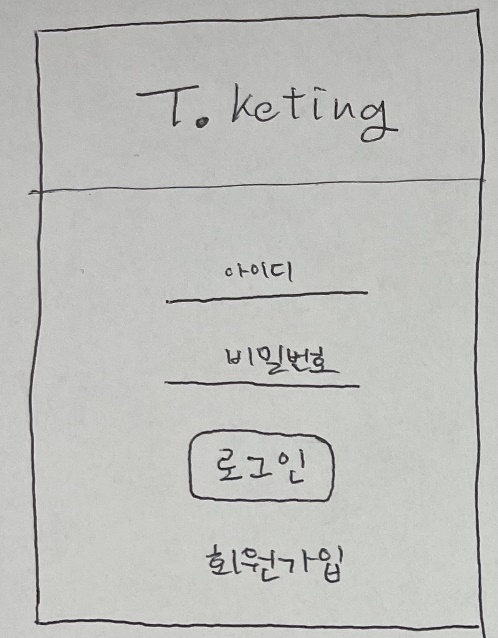 T. keting
아이디
비밀번호
로그인
회원가입